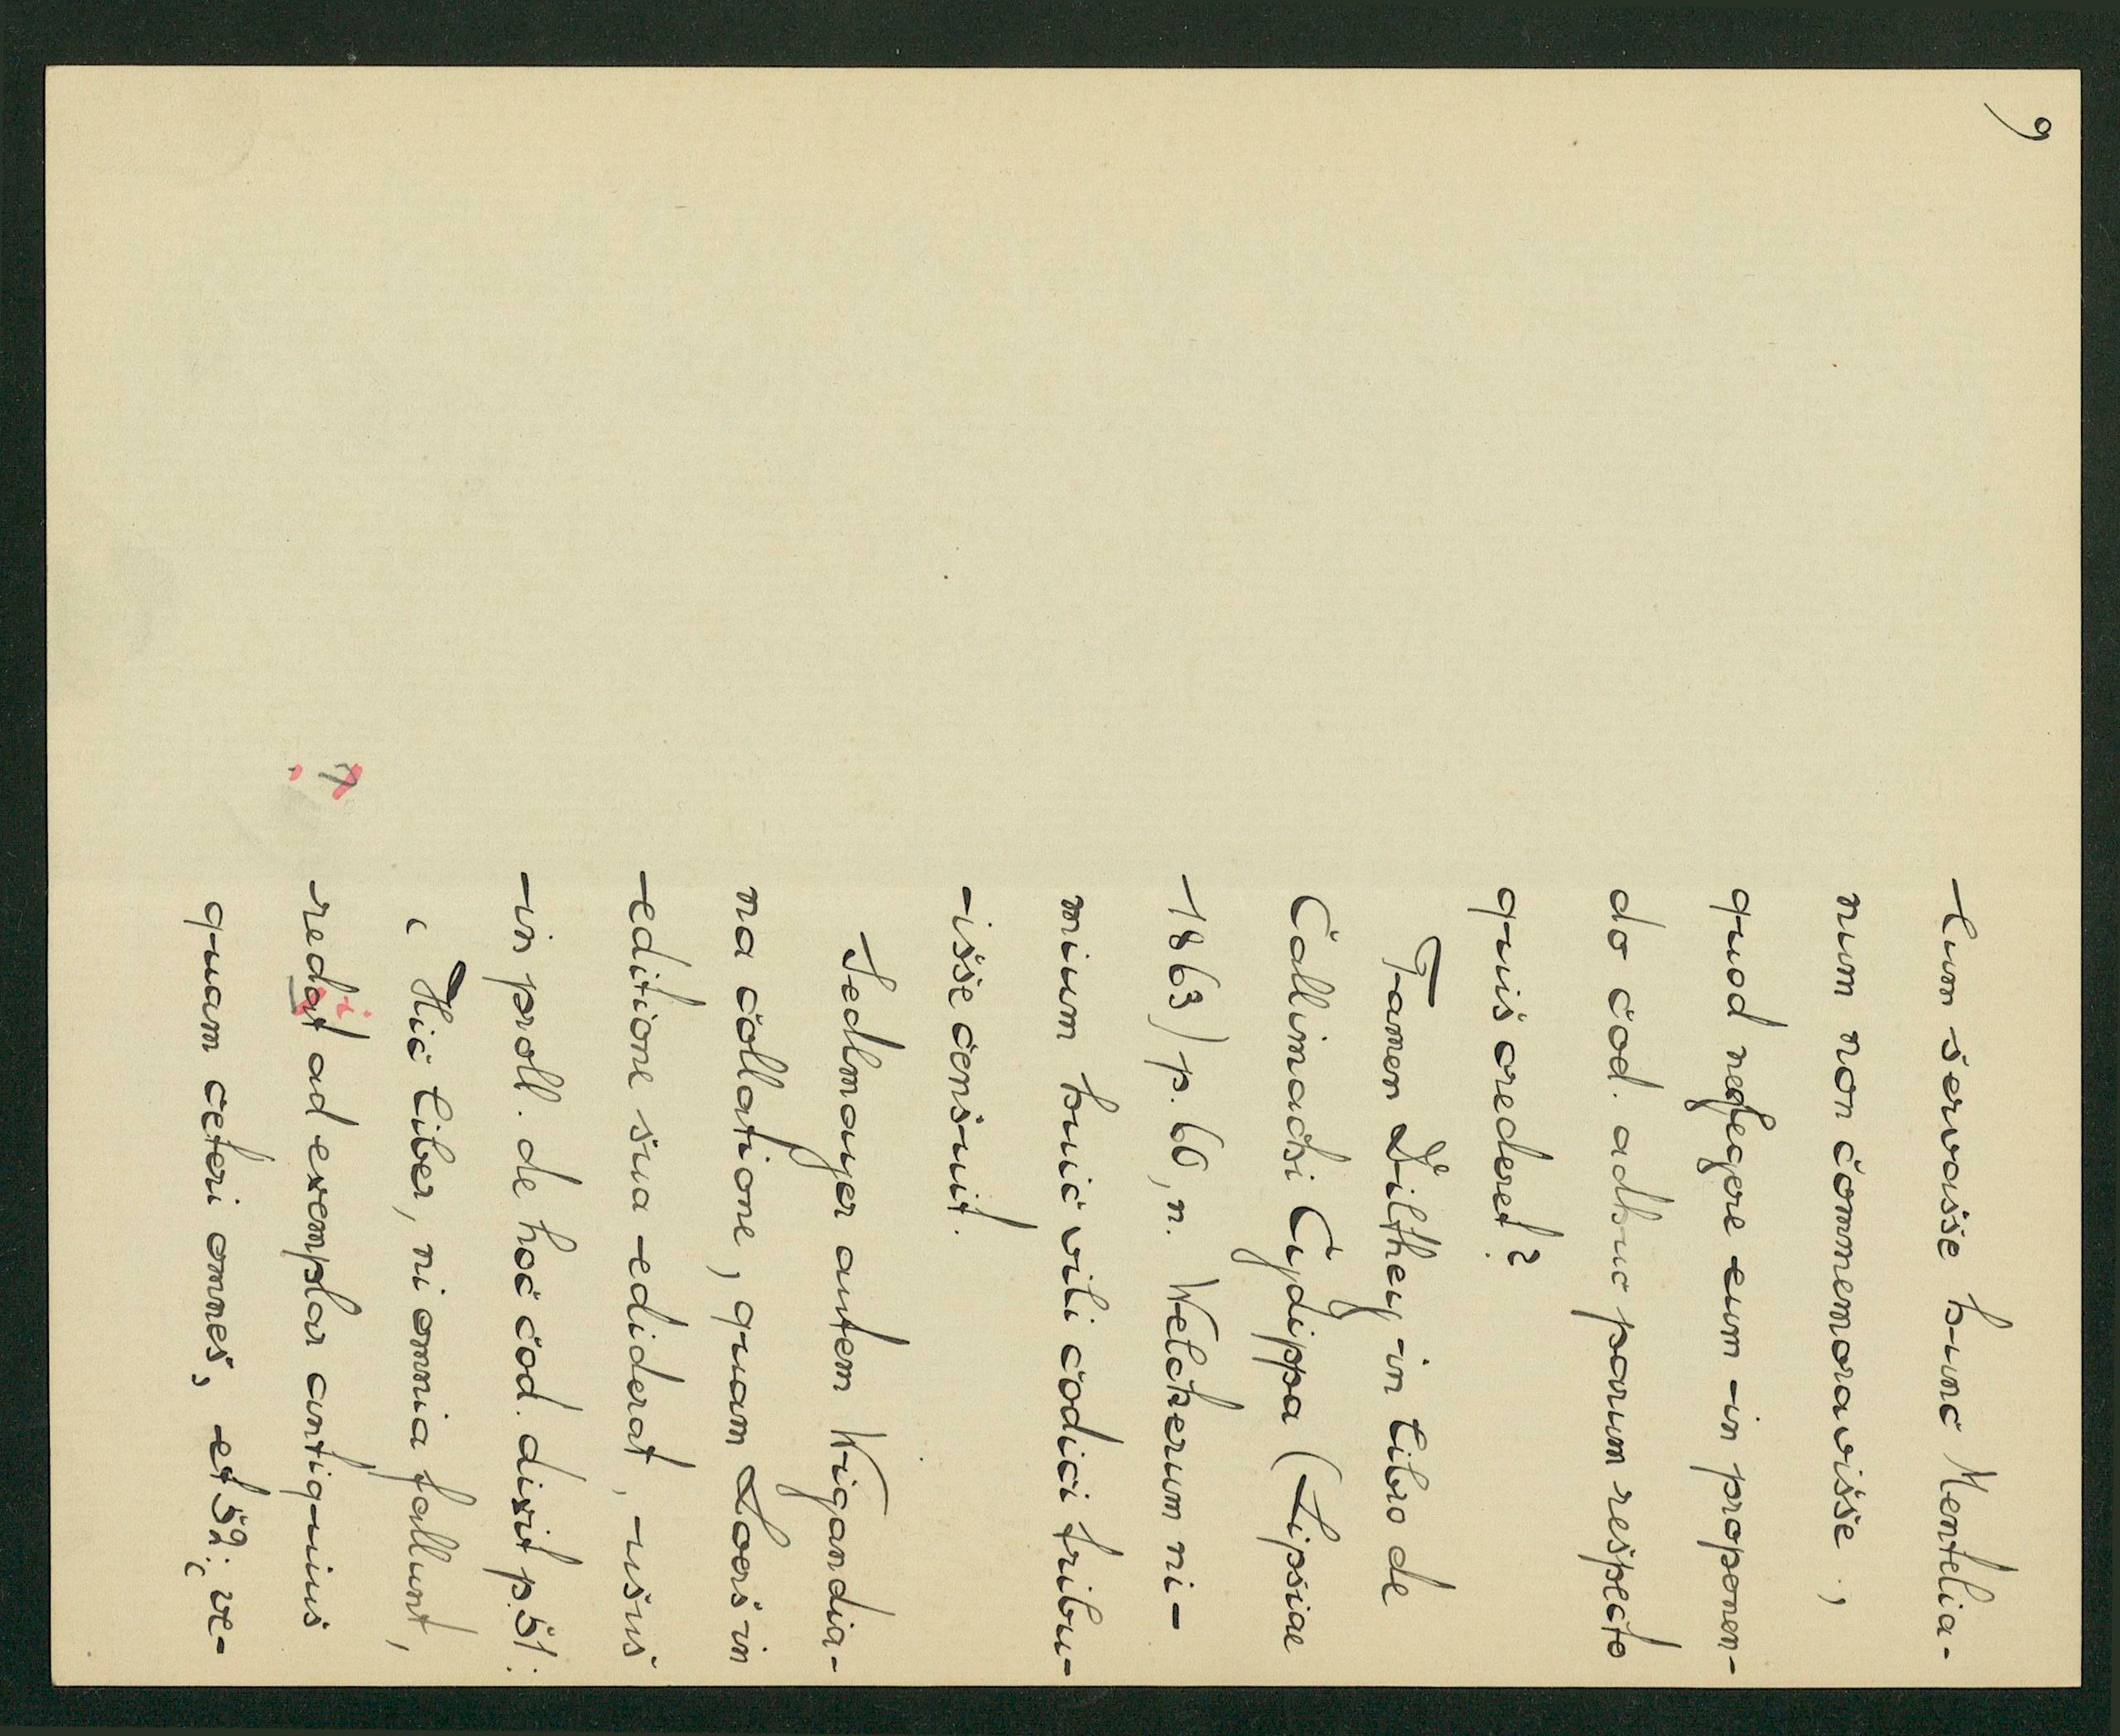 9
tum servasse hunc Mentelia-
num non commemoravisse,
quod neglegere eum in proponen-
do cod. adhuc parum respecto
quis crederet?
Tamen Dilthey in libro de
Callimachi Cydippa (Lipsiae
1863) p. 60, n. Welckerum ni-
mium huic vili codici tribu-
isse censuit.
Sedlmayer autem Wigandia-
na collatione, quam Loers in
editione sua ediderat, usus
in proll. de hoc cod. dixit p. 51:
‹ Hic liber, ni omnia fallunt,
redat ad exemplar antiquius
quam ceteri omnes, et 52: ‹ ve-